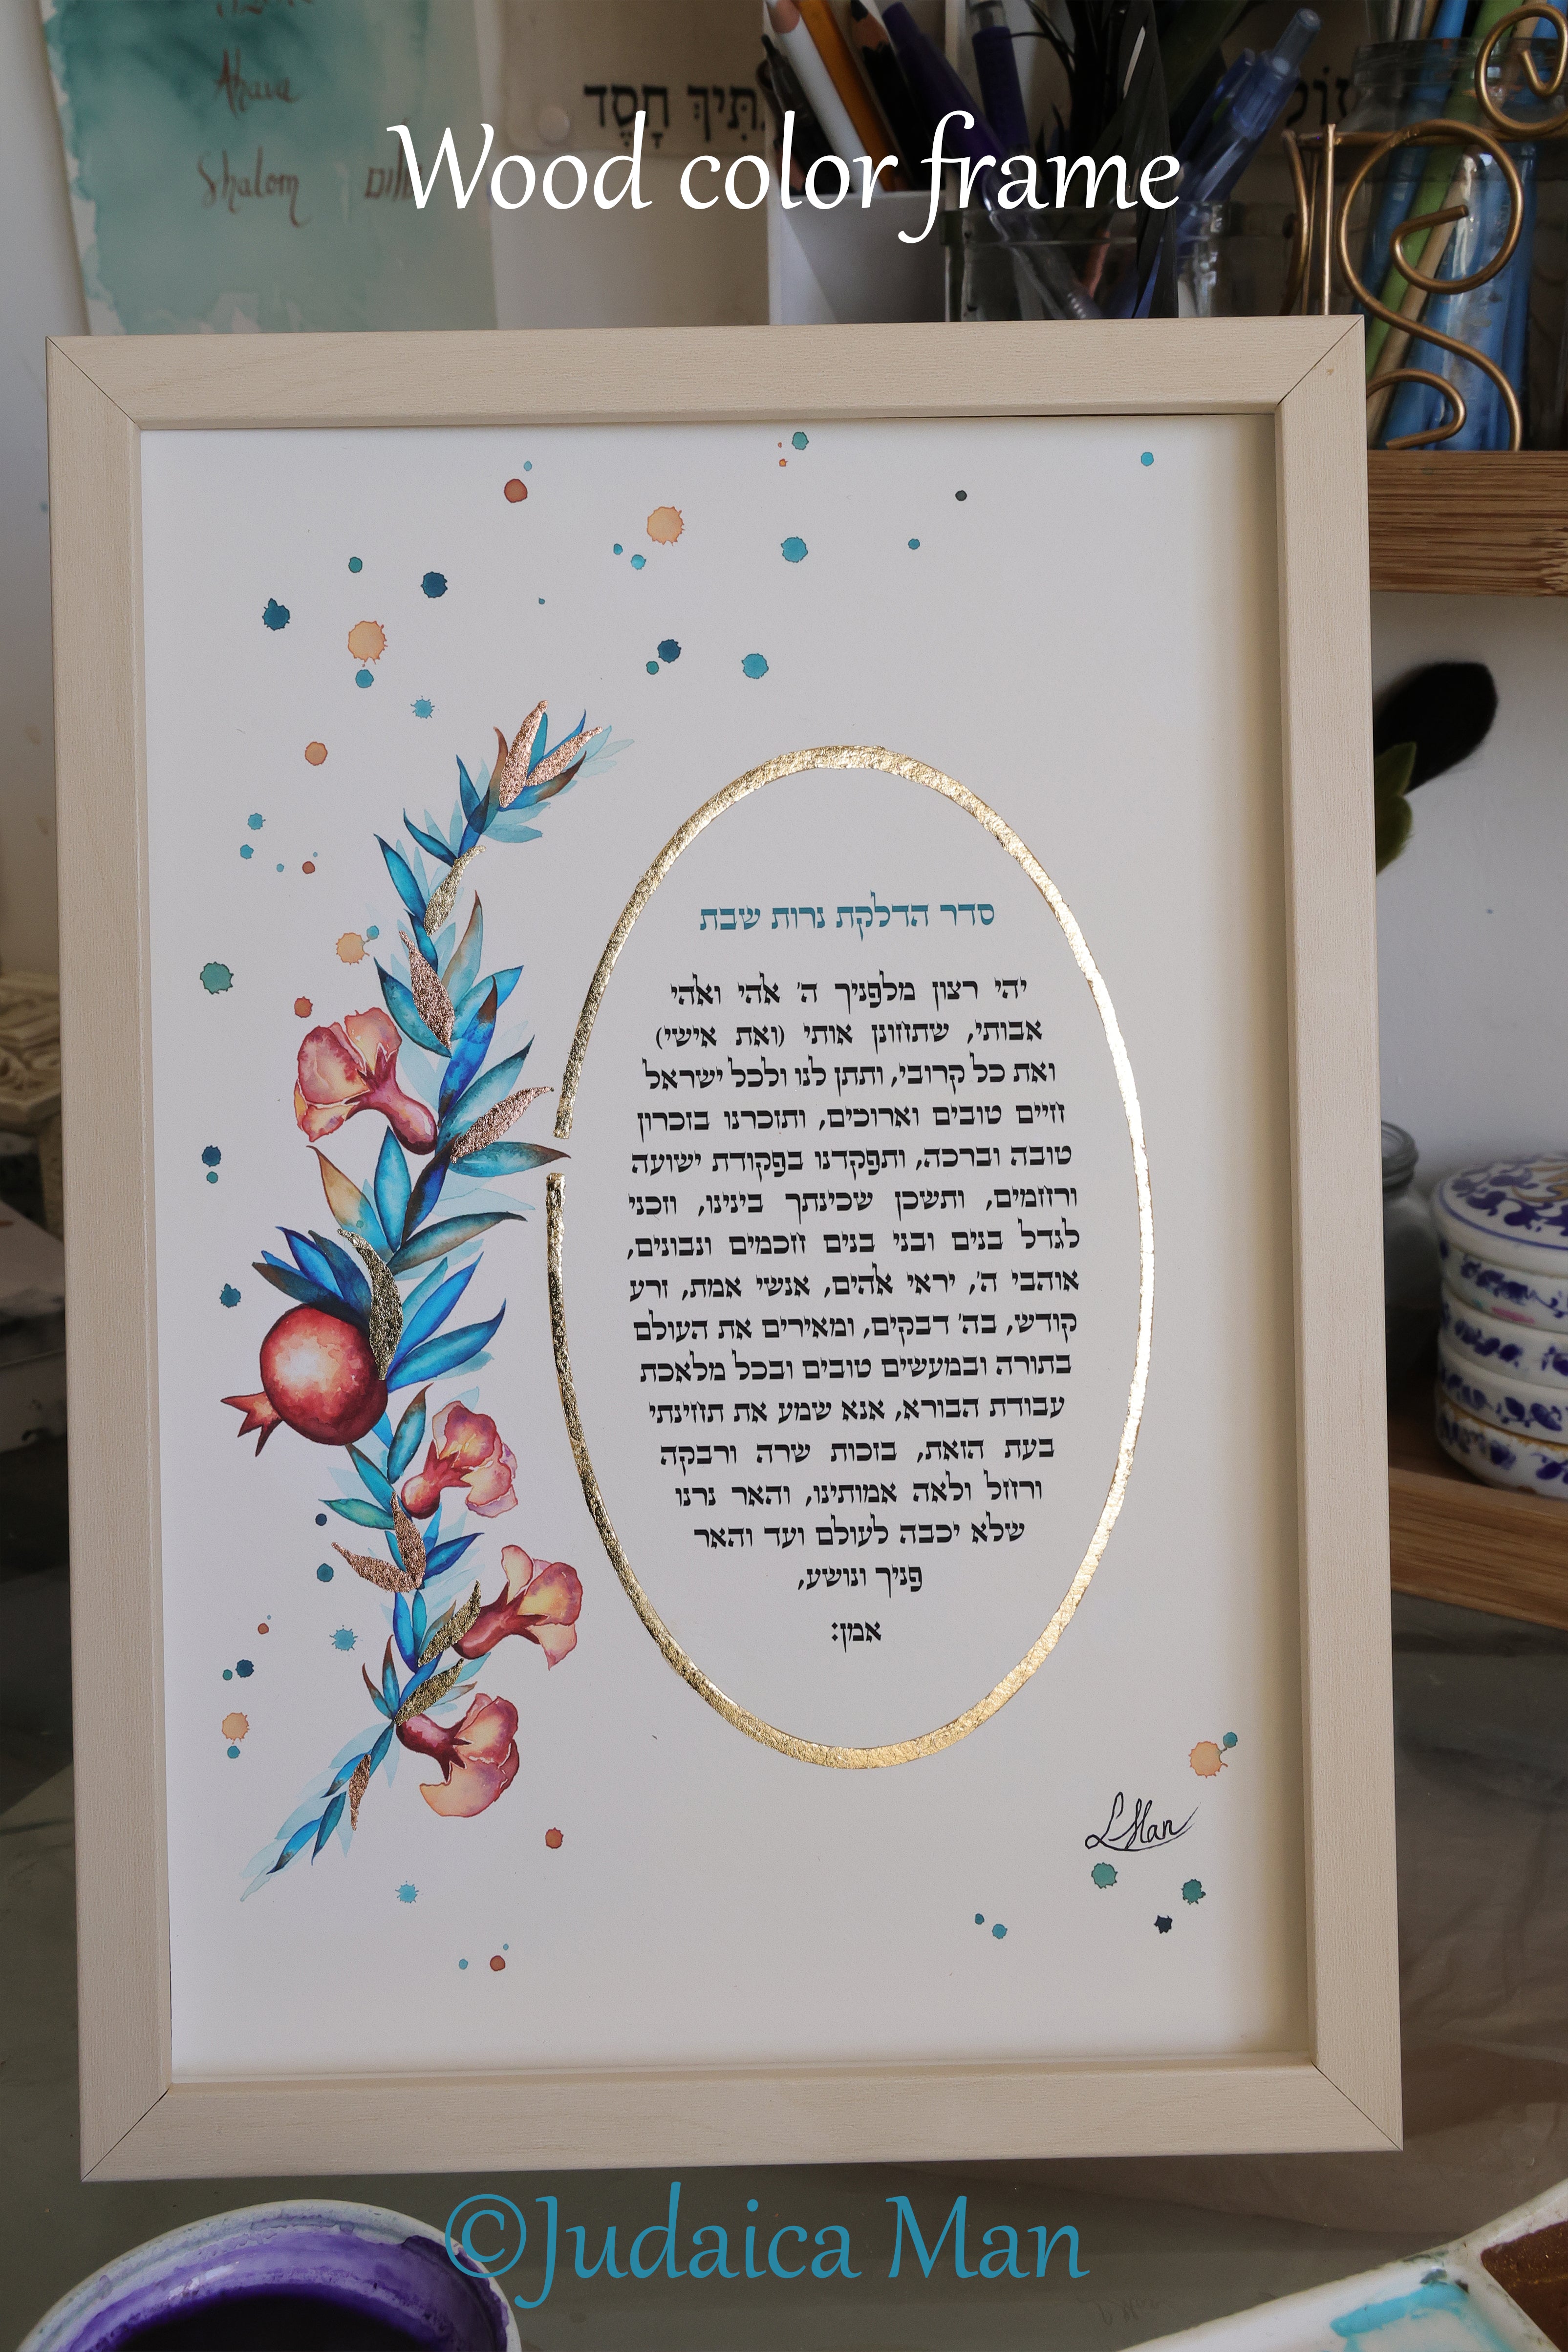 Ahava
תִּיךְ חָסֶד
Shalom
Wood color frame
סדר הדלקת נרות שבת
יהי רצון מלפניך ה' אלהי ואלהי
אבותי, שתחונן אותי (ואת אישי)
ואת כל קרובי, ותתן לנו ולכל ישראל
חיים טובים וארוכים, ותזכרנו בזכרון
טובה וברכה, ותפקדנו בפקודת ישועה
ורחמים, ותשכן שכינתך בינינו, וזכני
לגדל בנים ובני בנים חכמים ונבונים,
אוהבי ה', יראי אלהים, אנשי אמת, זרע
קודש, בה' דבקים, ומאירים את העולם
בתורה ובמעשים טובים ובכל מלאכת
עבודת הבורא, אנא שמע את תחינתי
בעת הזאת, בזכות שרה ורבקה
ורחל ולאה אמותינו, והאר נרנו
שלא יכבה לעולם ועד והאר
פניך ונושע,
אמן:
LMan
©Judaica Man